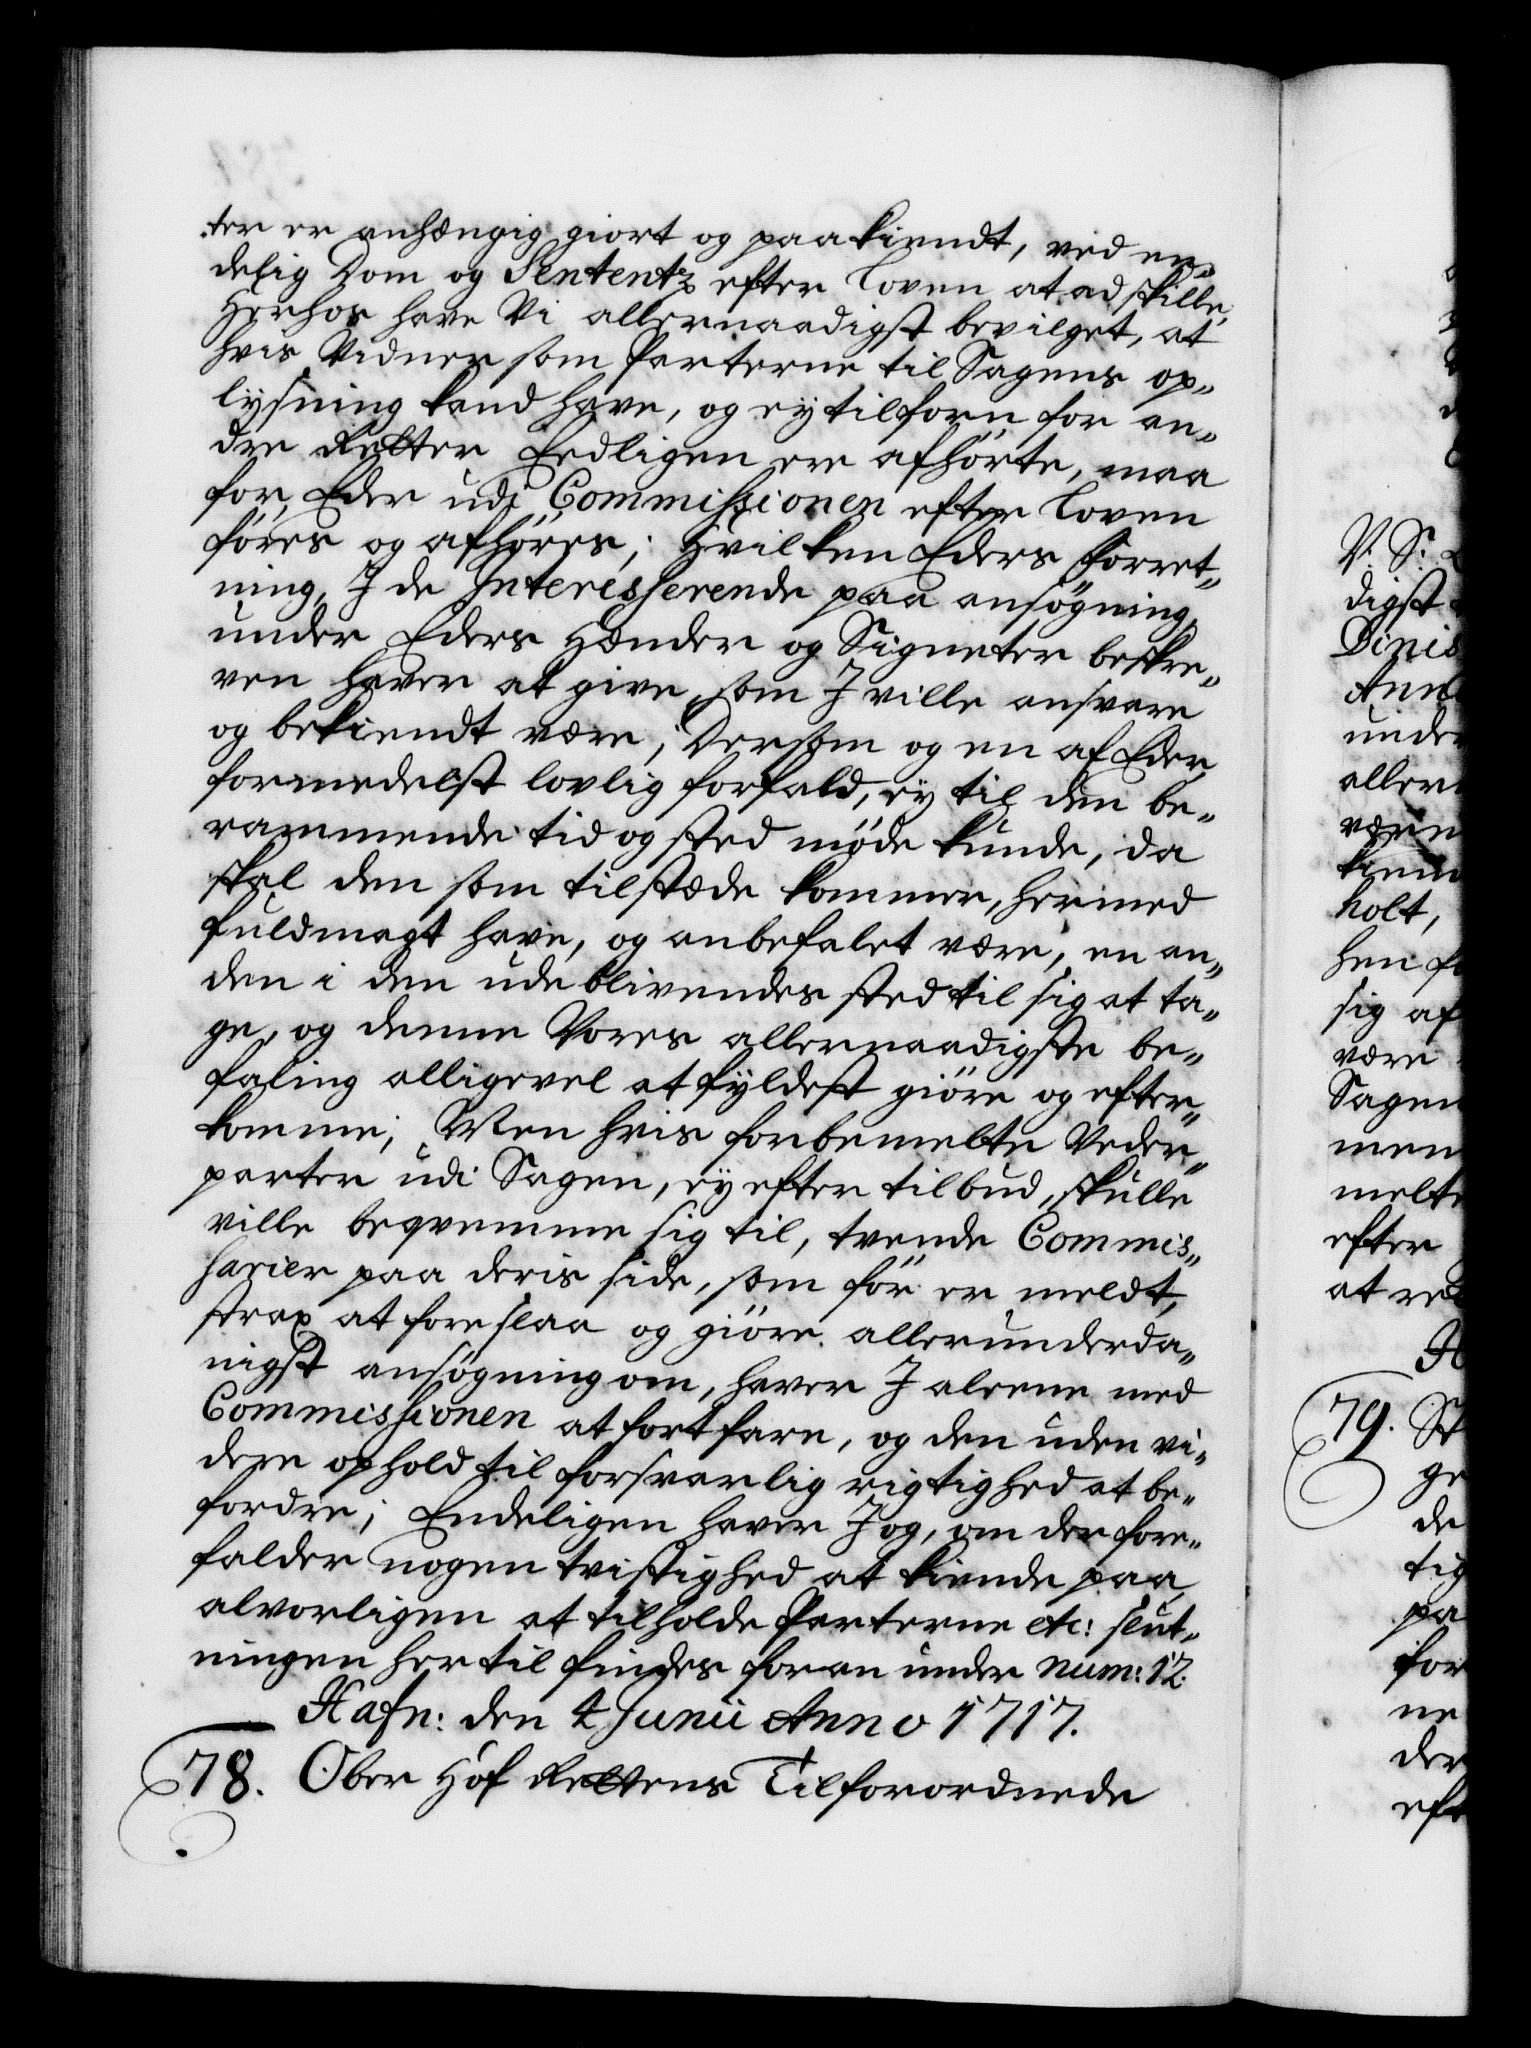 ter er anhængig giort og paakiendt, ved en-
delig Dom og Sententz efter Loven at adskille,
Herhos have Vi allernaadigst bevilget, at
hvis Vidner som Parterne til Sagens op-
lysning kand have, og ey tilforn for an-
dre Retter Eedligen ere afhørte, maa
for Eder udj Commissionen efter Loven
føres og afhøres; Hvilken Eders Forret-
ning, I de Interesserende paa ansøgning,
under Eders Hænder og Signeter beskre-
ven haver at give, som I ville ansvare
og bekiendt være; Dersom og en af Eder,
formedelst lovlig forfald, ey til den be-
rammende tid og sted møde kunde, da
skal den som tilstæde kommer, hermed
fuldmagt have, og anbefalet være, en an-
den i den udeblivendes sted til sig at ta-
ge, og denne Vores allernaadigste be-
faling alligevel at fyldest giøre og efter-
komme; Men hvis forbemelte Veder-
parter udi Sagen, ey efter tilbud, skulle
ville beqvemme sig til, tvende Commis-
sarier paa deris side, som før er meldt,
strax at foreslaa og giøre allerunderda-
nigst ansøgning om, haver I aleene med
Commissionen at fortfare, og den uden vi-
dere ophold til forsvarlig rigtighed at be-
fordre; Endeligen haver I og, om der fore-
falder nogen tvistighed at kiende paa,
alvorligen at tilholde Parterne etc: slut-
ningen hertil findes foran under num: 12.
Hafn: den 4 Junii Anno 1717.
78. Ober Hof Rettens Tilforordnede
V: S:
digst
Dinis
Ann
under
allern
være
kiend
holt,
hen
sig af
være
Sagen
men
melte
efter
at
H
79. St
ge
de
tig
pa
for
ne
der
eft